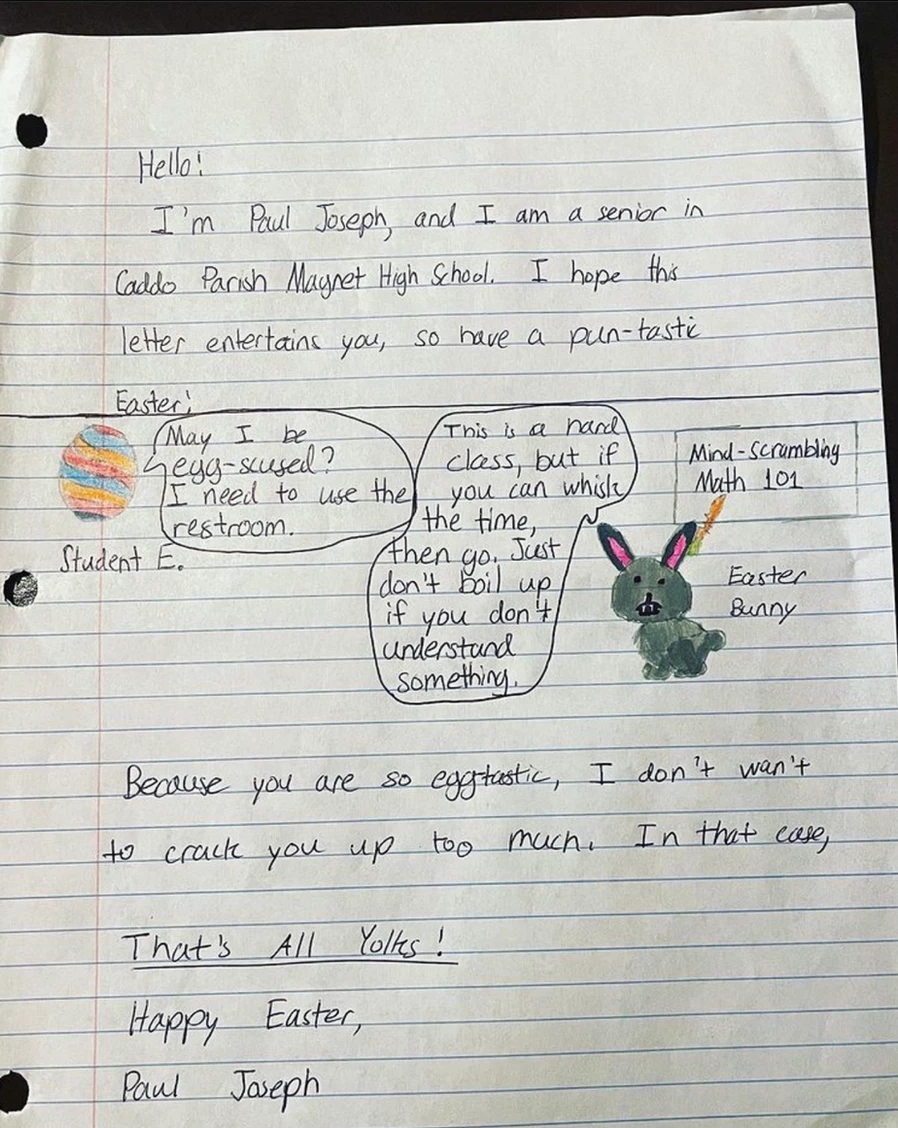 Hello!
I'm Paul Joseph, and I am a senior in
Caddo Parish Magnet High School. I hope this
letter entertains you, so have a pun-tastic
Easter!
May I be
egg-scused?
I need to use the
restroom.
Student E.
This is a hard
class, but if
you can whisk
the time,
then go. Just
don't boil up
if you don't
understand
something.
Mind-Scrambling
Math 101
Easter
Bunny
Because you are so eggtastic, I don't wan't
to crack you up too much. In that case,
That's All Yolks!
Happy Easter,
Paul Joseph